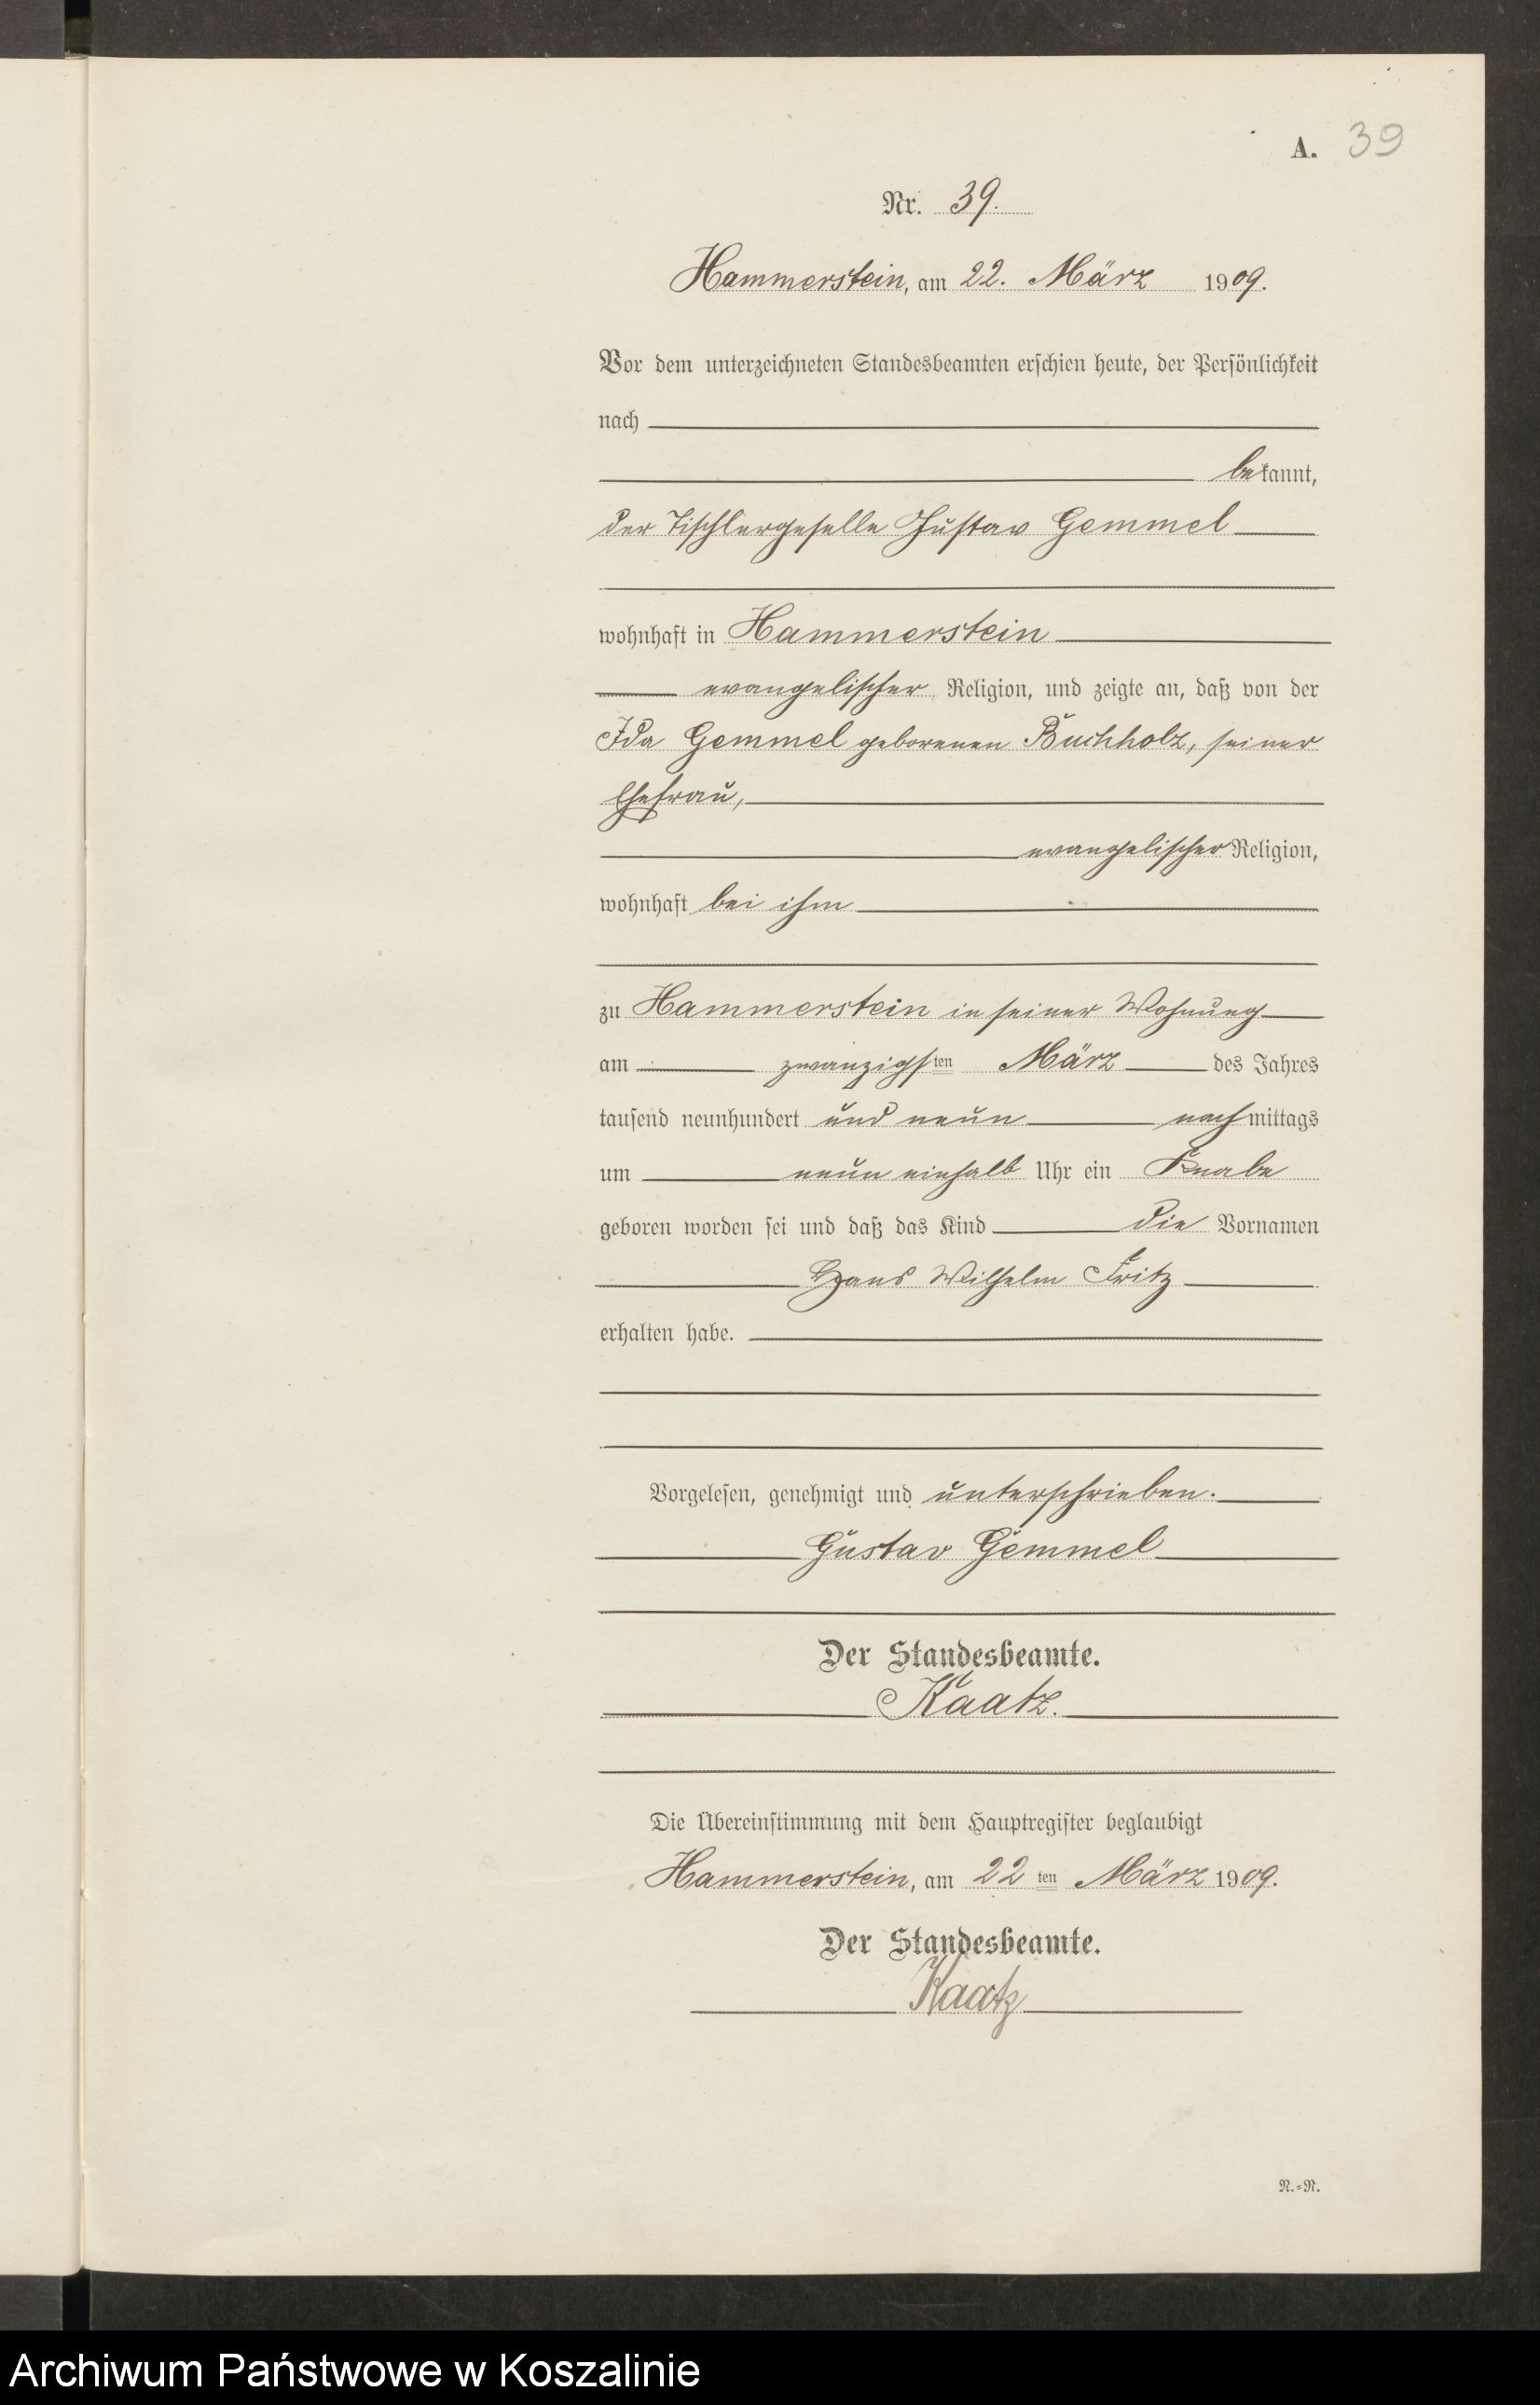 A. 39
Nr. 39.
Hammerstein, am 22. März 1909.
Vor dem unterzeichneten Standesbeamten erschien heute, der Persönlichkeit
nach
bekannt,
der Tischlergeselle Gustav Gemmel
wohnhaft in Hammerstein
evangelischer Religion, und zeigte an, daß von der
Ida Gemmel geborenen Buchholz, seiner
Ehefrau,
evangelischer Religion,
wohnhaft bei ihm
zu Hammerstein in seiner Wohnung
am zwanzigsten März des Jahres
tausend neunhundert und neun nachmittags
um neun einhalb Uhr ein Knabe
geboren worden sei und daß das Kind die Vornamen
Hans Wilhelm Fritz
erhalten habe.
Vorgelesen, genehmigt und unterschrieben.
Gustav Gemmel
Der Standesbeamte.
Kaatz.
Die Übereinstimmung mit dem Hauptregister beglaubigt
Hammerstein, am 22 ten März 1909.
Der Standesbeamte.
Kaatz
N.=R.
Archiwum Państwowe w Koszalinie